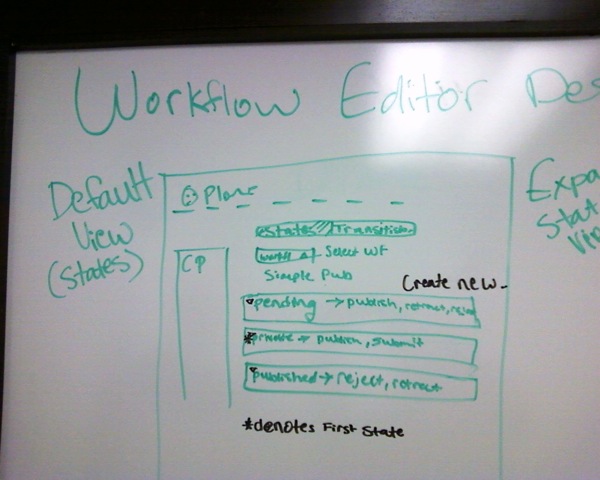 Workflow Editor Des
Default
View
(States)
Expa
Stat
Vi
Plone
States // Transitions
Select WF
Simple Pub
CP
Create new
pending -> publish, retract, reject
*private -> publish, submit
published -> reject, retract
*denotes First State